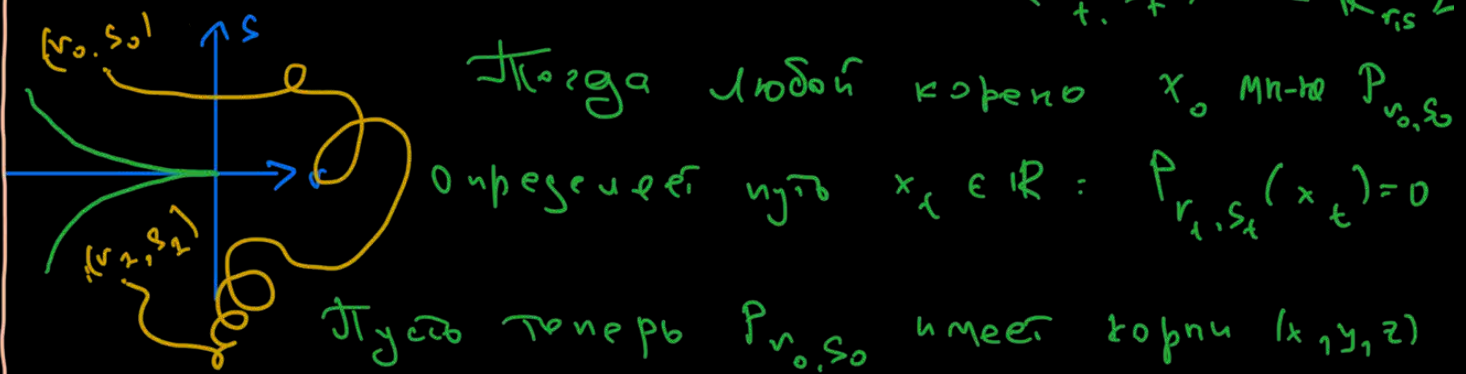 (r₀, s₀) s
Тогда любой корень x₀ мн-на P_{r₀,s₀}
r
определяет путь x_t ∈ ℝ : P_{r_t,s_t}(x_t)=0
(r₁,s₁)
Пусть теперь P_{r₀,s₀} имеет корни (x,y,z)